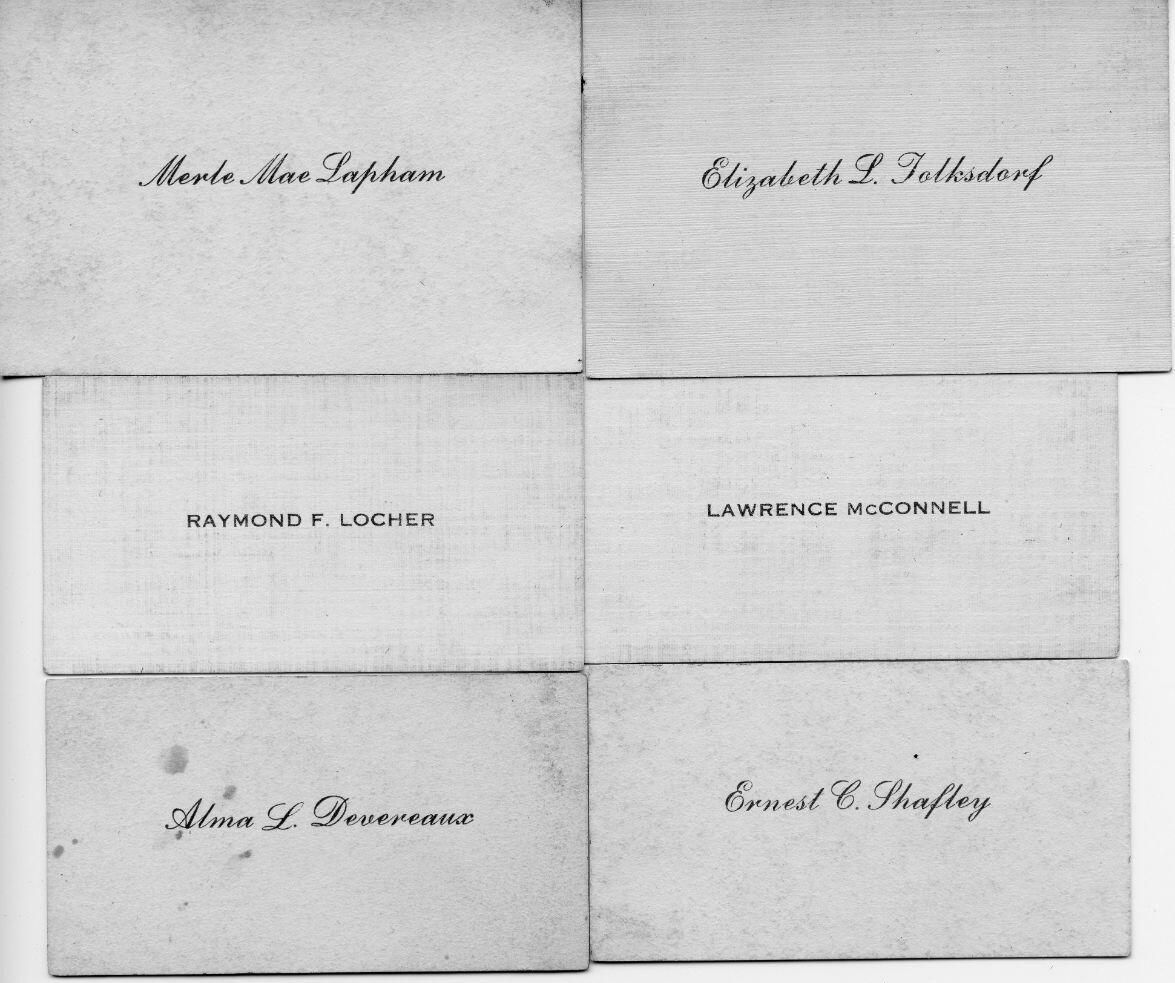 Merle Mae Lapham
Elizabeth L. Folksdorf
RAYMOND F. LOCHER
LAWRENCE McCONNELL
Alma L. Devereaux
Ernest C. Shafley